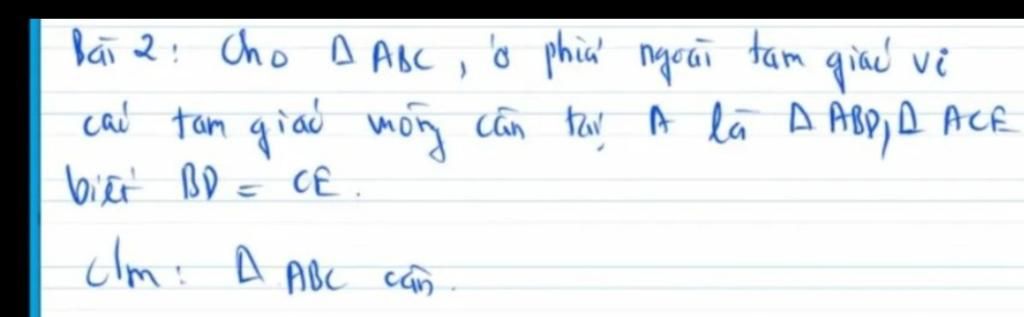 Bài 2: Cho Δ ABC, ở phía ngoài tam giác vẽ
các tam giác vuông cân tại A là Δ ABD, Δ ACE
biết BD = CE.
c/m: Δ ABC cân.